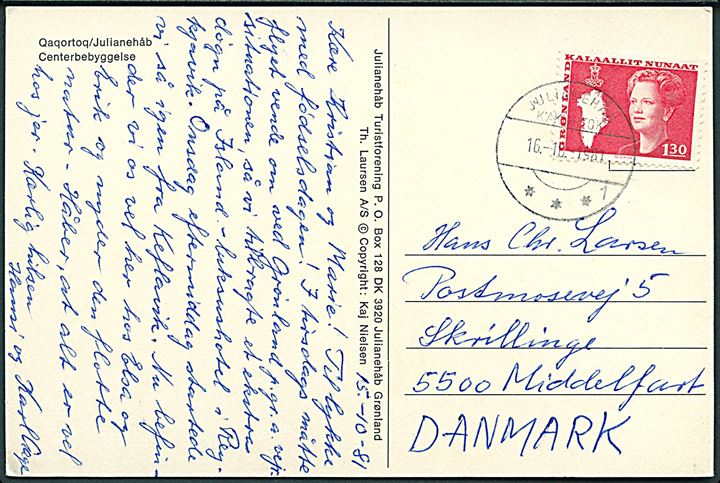 Qaqortoq/Julianehåb
Centerbebyggelse
15.-10-81
Kære Kristian og Marie! Tillykke
med fødselsdagen! I tirsdags måtte
flyet vende om ved Grønland p.gr.a. vejr-
situationen, så vi tilbragte et ekstra
døgn på Island - luksushotel i Rey-
kjavik. Onsdag eftermiddag startede
vi så igen fra Keflavik. Nu befin-
der vi os vel her hos Elsa og
Erik og nyder den flotte
natur - Håber, at alt er vel
hos jer. Kærlig hilsen
Hansi og Karl Aage
Julianehåb Turistforening P. O. Box 128 DK 3920 Julianehåb Grønland
Th. Laursen A/S © Copyright: Kaj Nielsen
KALAALLIT NUNAAT
GRØNLAND
1.30
JULIANEHÅB
16.-10.1981
* * * 1
Hans Chr. Larsen
Postmosevej 5
Skrillinge
5500 Middelfart
DANMARK